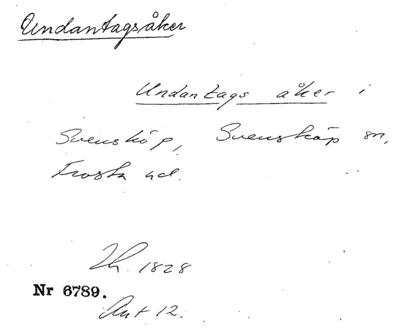 Undantagsåker
Undantags åker i
Svensköp, Svensköp sn,
Frosta hd.
Lh. 1828
Nr 6789.
Akt 12.